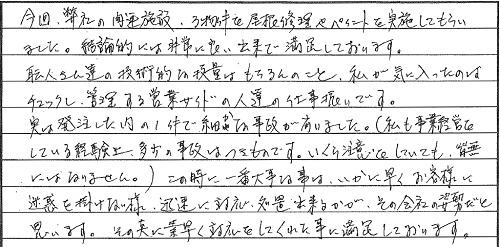 今回、弊社の関連施設、3物件を屋根修理やペイントを実施してもらい
ました。結論的には非常に良い出来で満足しております。
職人さん達の技術的な技量はもちろんのこと、私が気に入ったのは
チェックし、管理する営業サイドの人達の仕事振いです。
実は発注した内の1件で細かな事故が有いました。(私も事業経営を
している経験上、多少の事故はつきものです。いくら注意をしていても、皆無
にはなりません。) この時に一番大事な事は、いかに早くお客様に
迷惑を掛けない様、迅速に対応、処置出来るかが、その会社の姿勢だと
思います。その点に素早く対応をしてくれた事に満足しております。